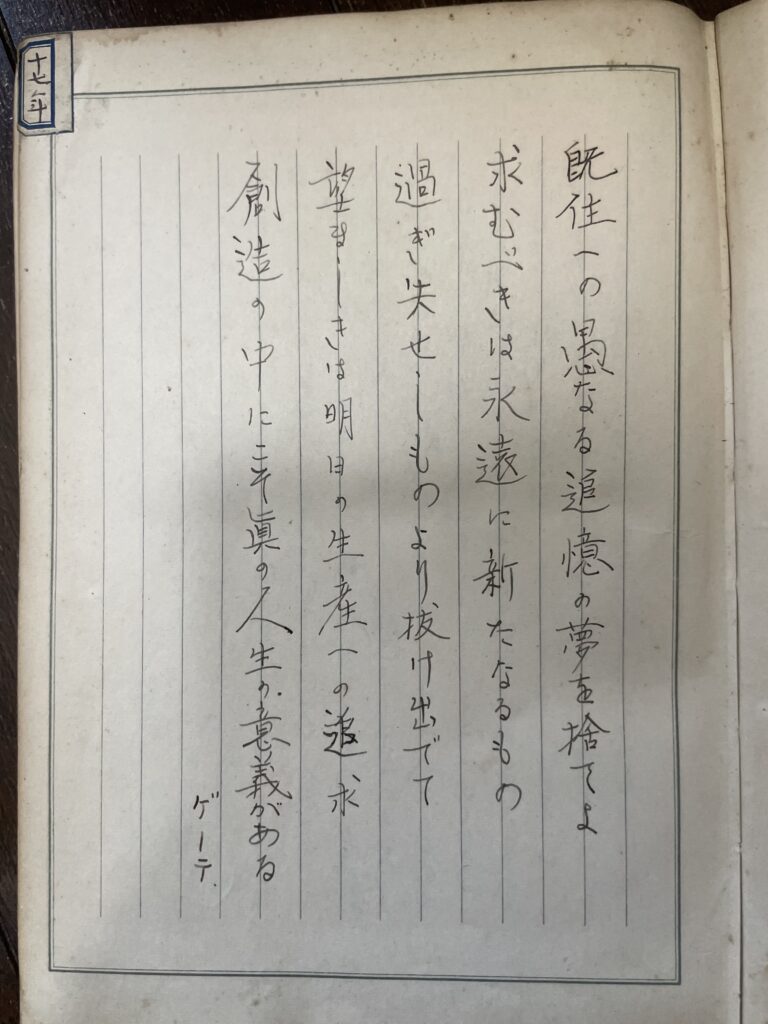 十七年
既往への愚なる追憶の夢を捨てよ
求むべきは永遠に新たなるもの
過ぎ失せしものより抜け出でて
望ましきは明日の生産への追求
創造の中にこそ眞の人生の意義がある
ゲーテ.